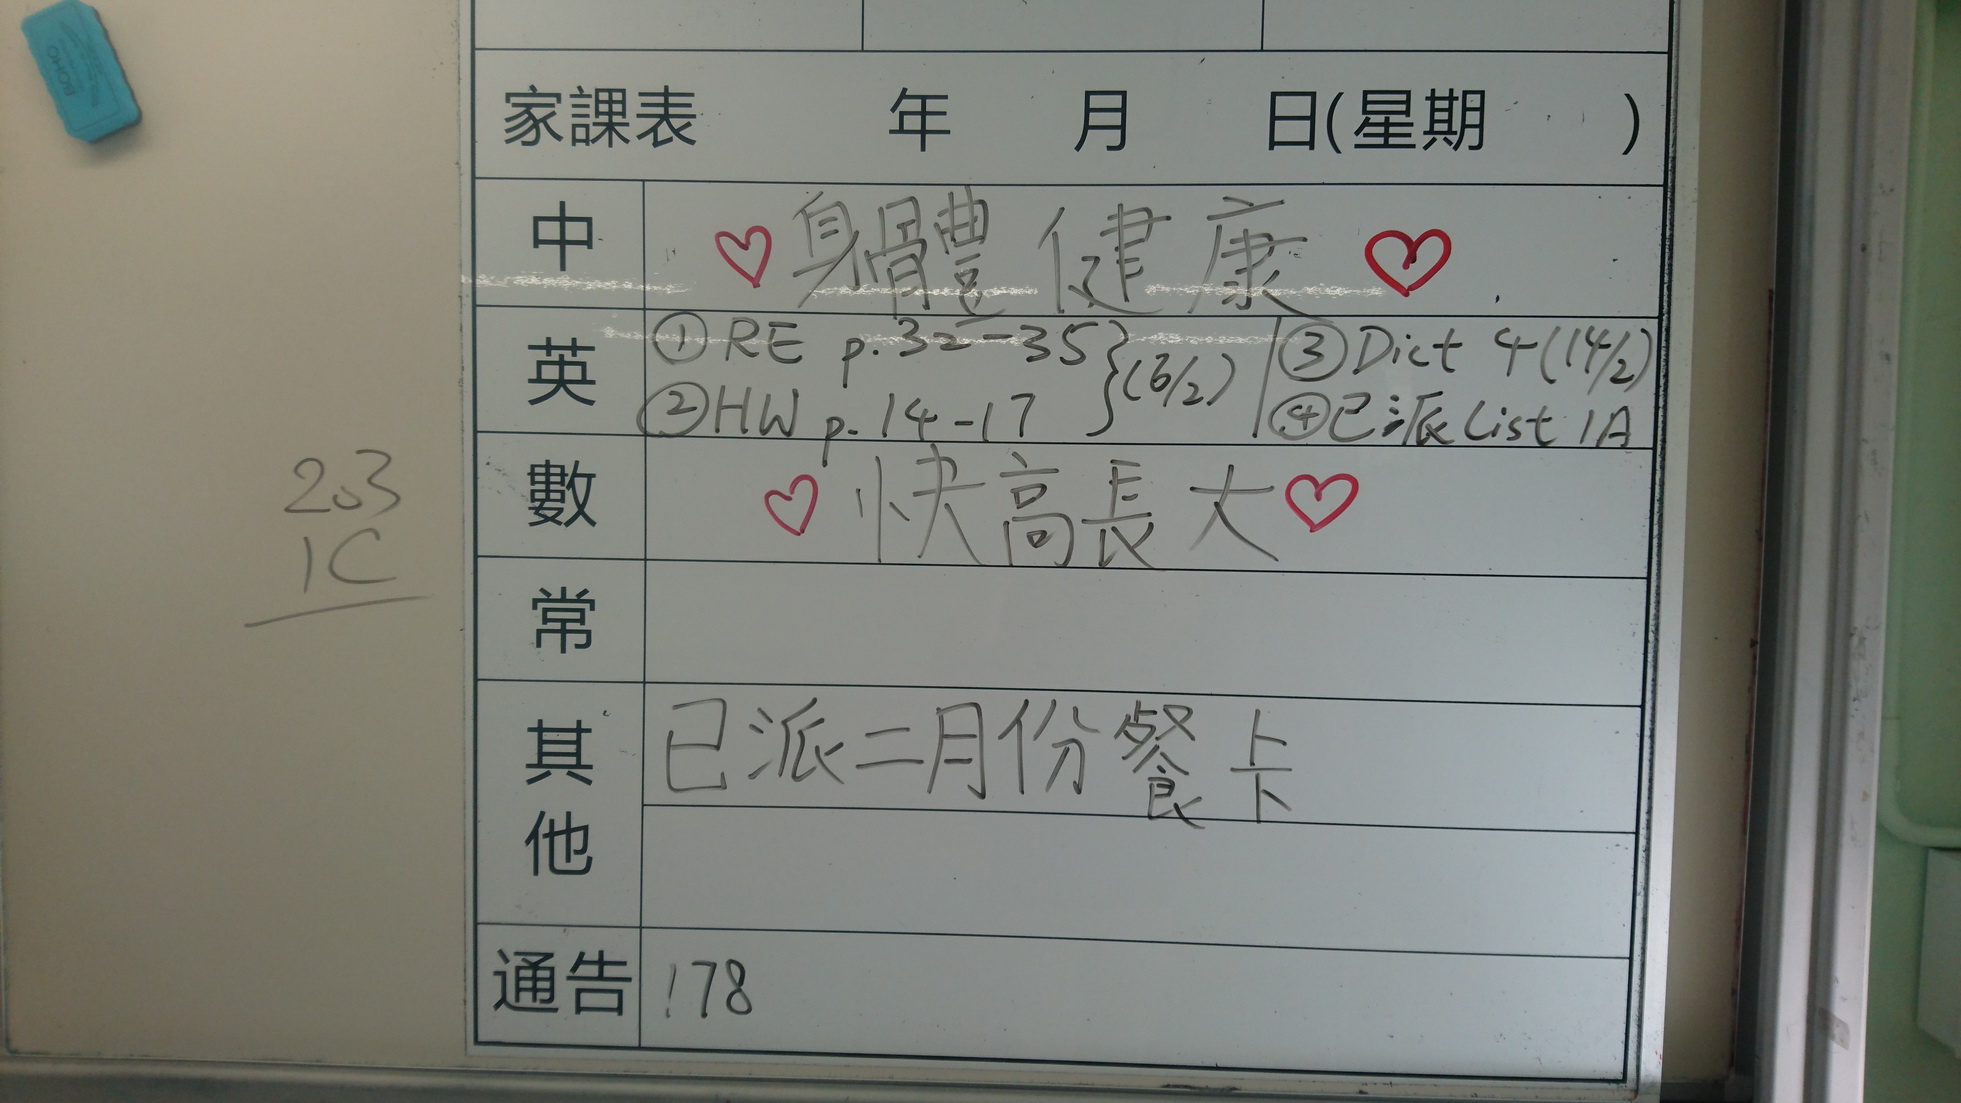 BOHO
家課表 年 月 日(星期 )
中 ♡身體健康♡
英 ①RE p.32-35 }(6/2) | ③Dict 4(14/2)
②HW p.14-17 ④已派List 1A
數 ♡快高長大♡
常
其他 已派二月份餐卡
通告 178
203
1C